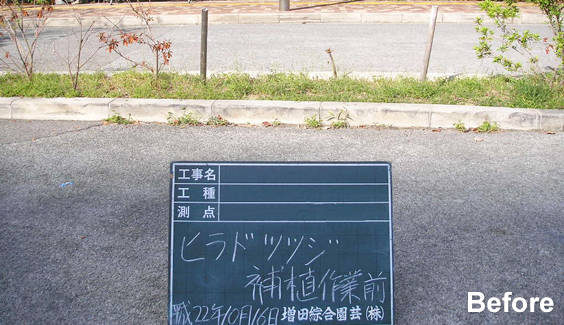 工事名
工 種
測 点
ヒラドツツジ
補植作業前
平成22年10月16日 増田綜合園芸(株)
Before